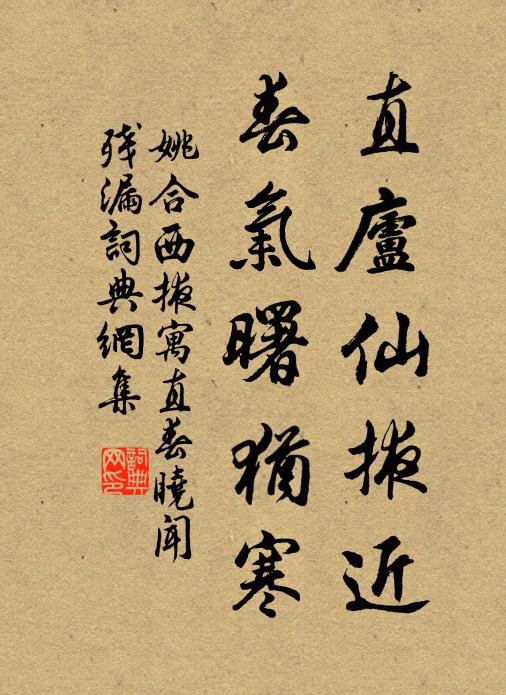 直廬仙掖近
春氣曙猶寒
姚合西掖寓直春曉聞
殘漏詞典網集
詞典
网印